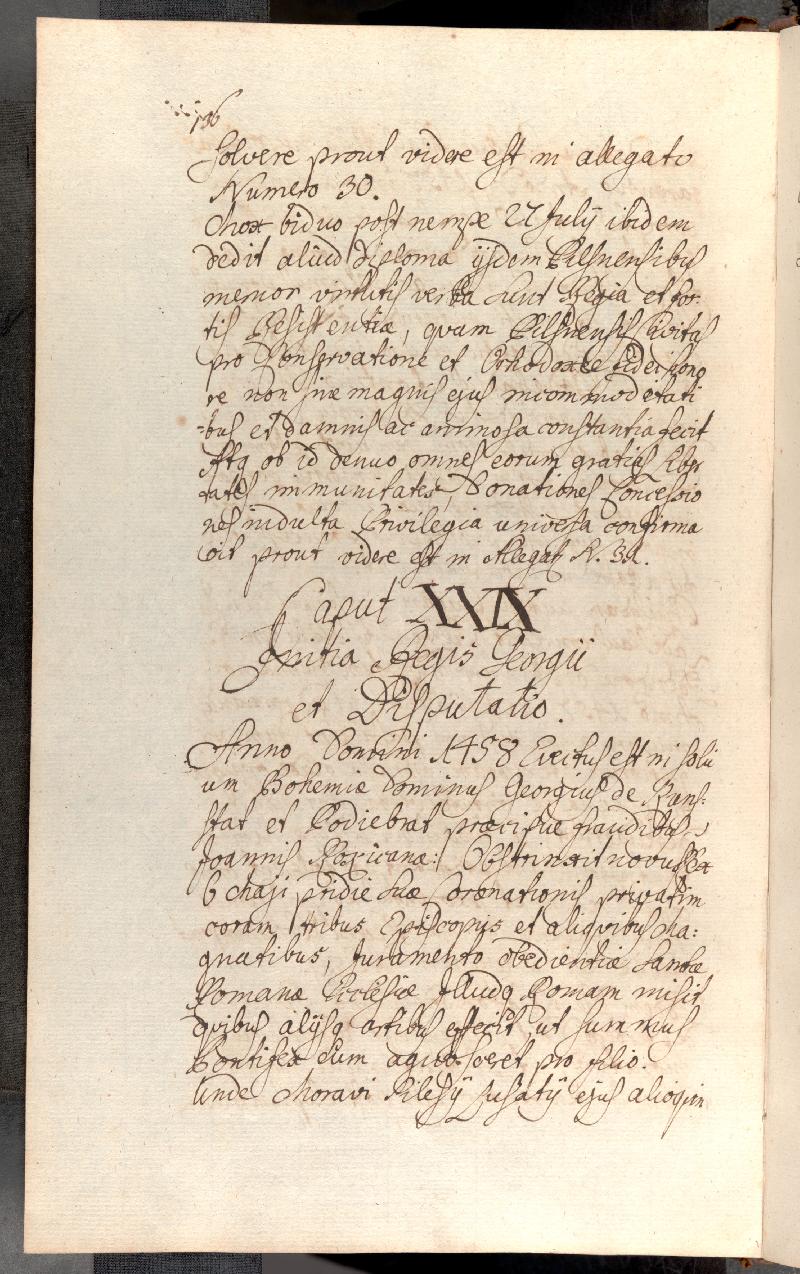 136
Solvere prout videre est in allegato
Numero 30.
Mox biduo post nempe 27 Julij ibidem
dedit aliud diploma ijsdem Pilsnensibus
memor virtutis verba sunt Regia et for:
tis Resistentiæ, quam Pilsnensis Civitas
pro Conservatione et Orthodoxæ fidei hono
re non sine magnis ejus incommoditati
-bus et damnis ac animosa constantia fecit
Atq ob id denuo omnes eorum gratias liber
tates immunitates, Donationes Concessio
nes indulta Privilegia universa confirma
vit prout videre est in Allegat N. 31.
Caput XXIX
Initia Regis Georgii
et Disputatio.
Anno Domini 1458 Evectus est in soli
um Bohemiæ Dominus Georgius de Kuns:
stat et Podiebrat præcipue fraudibus
Joannis Rokicanæ: Obstrinxit novus Rex
6 Maji pridie suæ Coronationis privatim
coram tribus Episcopis et aliqvibus Ma:
gnatibus, Juramento obedientiæ Sanctæ
Romanæ Ecclesiæ Illudq Romam misit
qvibus alijsq artibus effecit, ut summus
Pontifex eum agnosceret pro filio.
Unde Moravi Silesij Lusatij ejus alioqvin